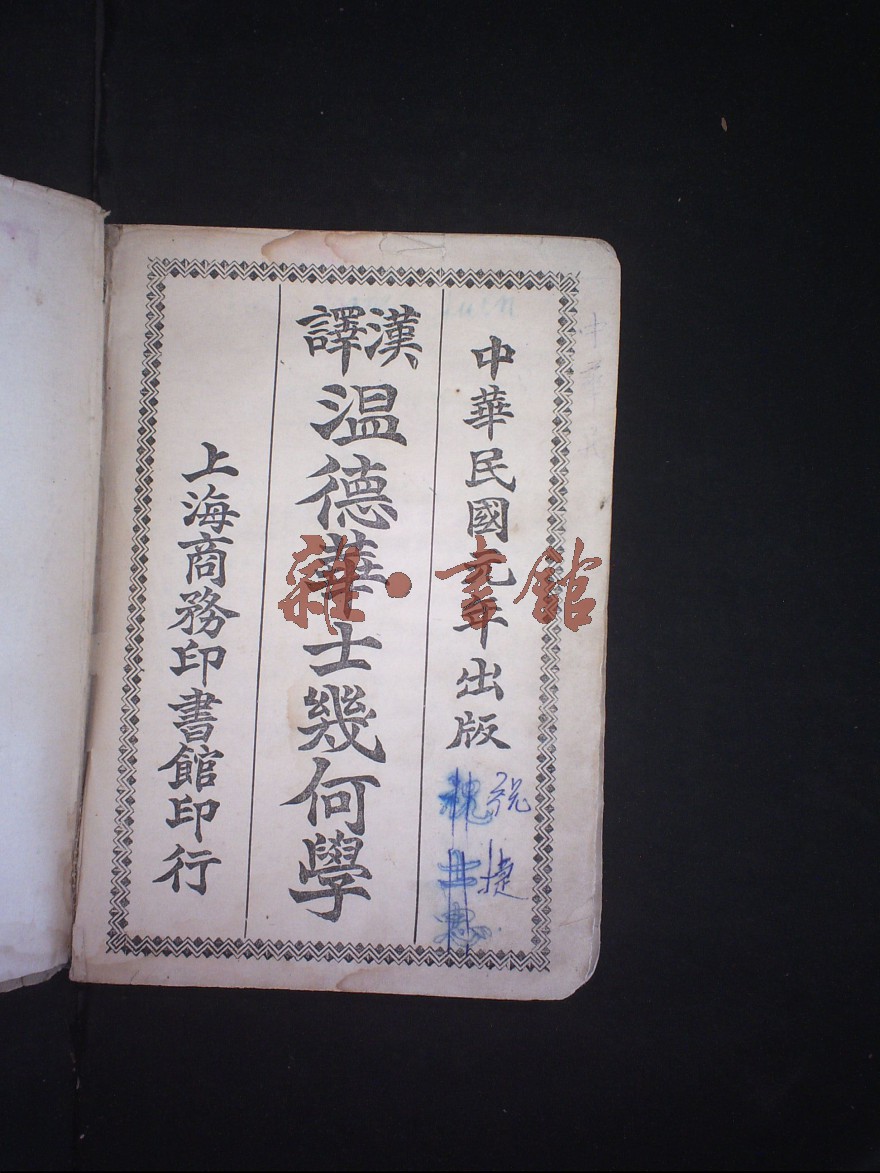 中華民國元年出版
漢譯
温德華士幾何學
上海商務印書館印行
捷
雜·書館
中華民